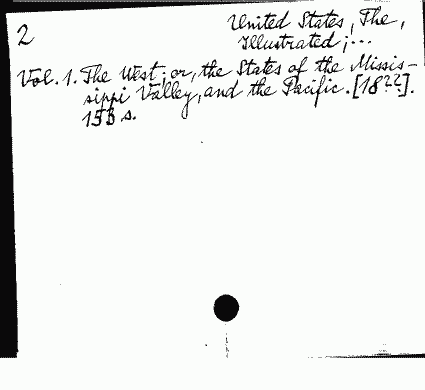 2
United States, The,
Illustrated;...
Vol. 1. The West; or, the States of the Missis-
sippi Valley, and the Pacific. [18??].
153 s.